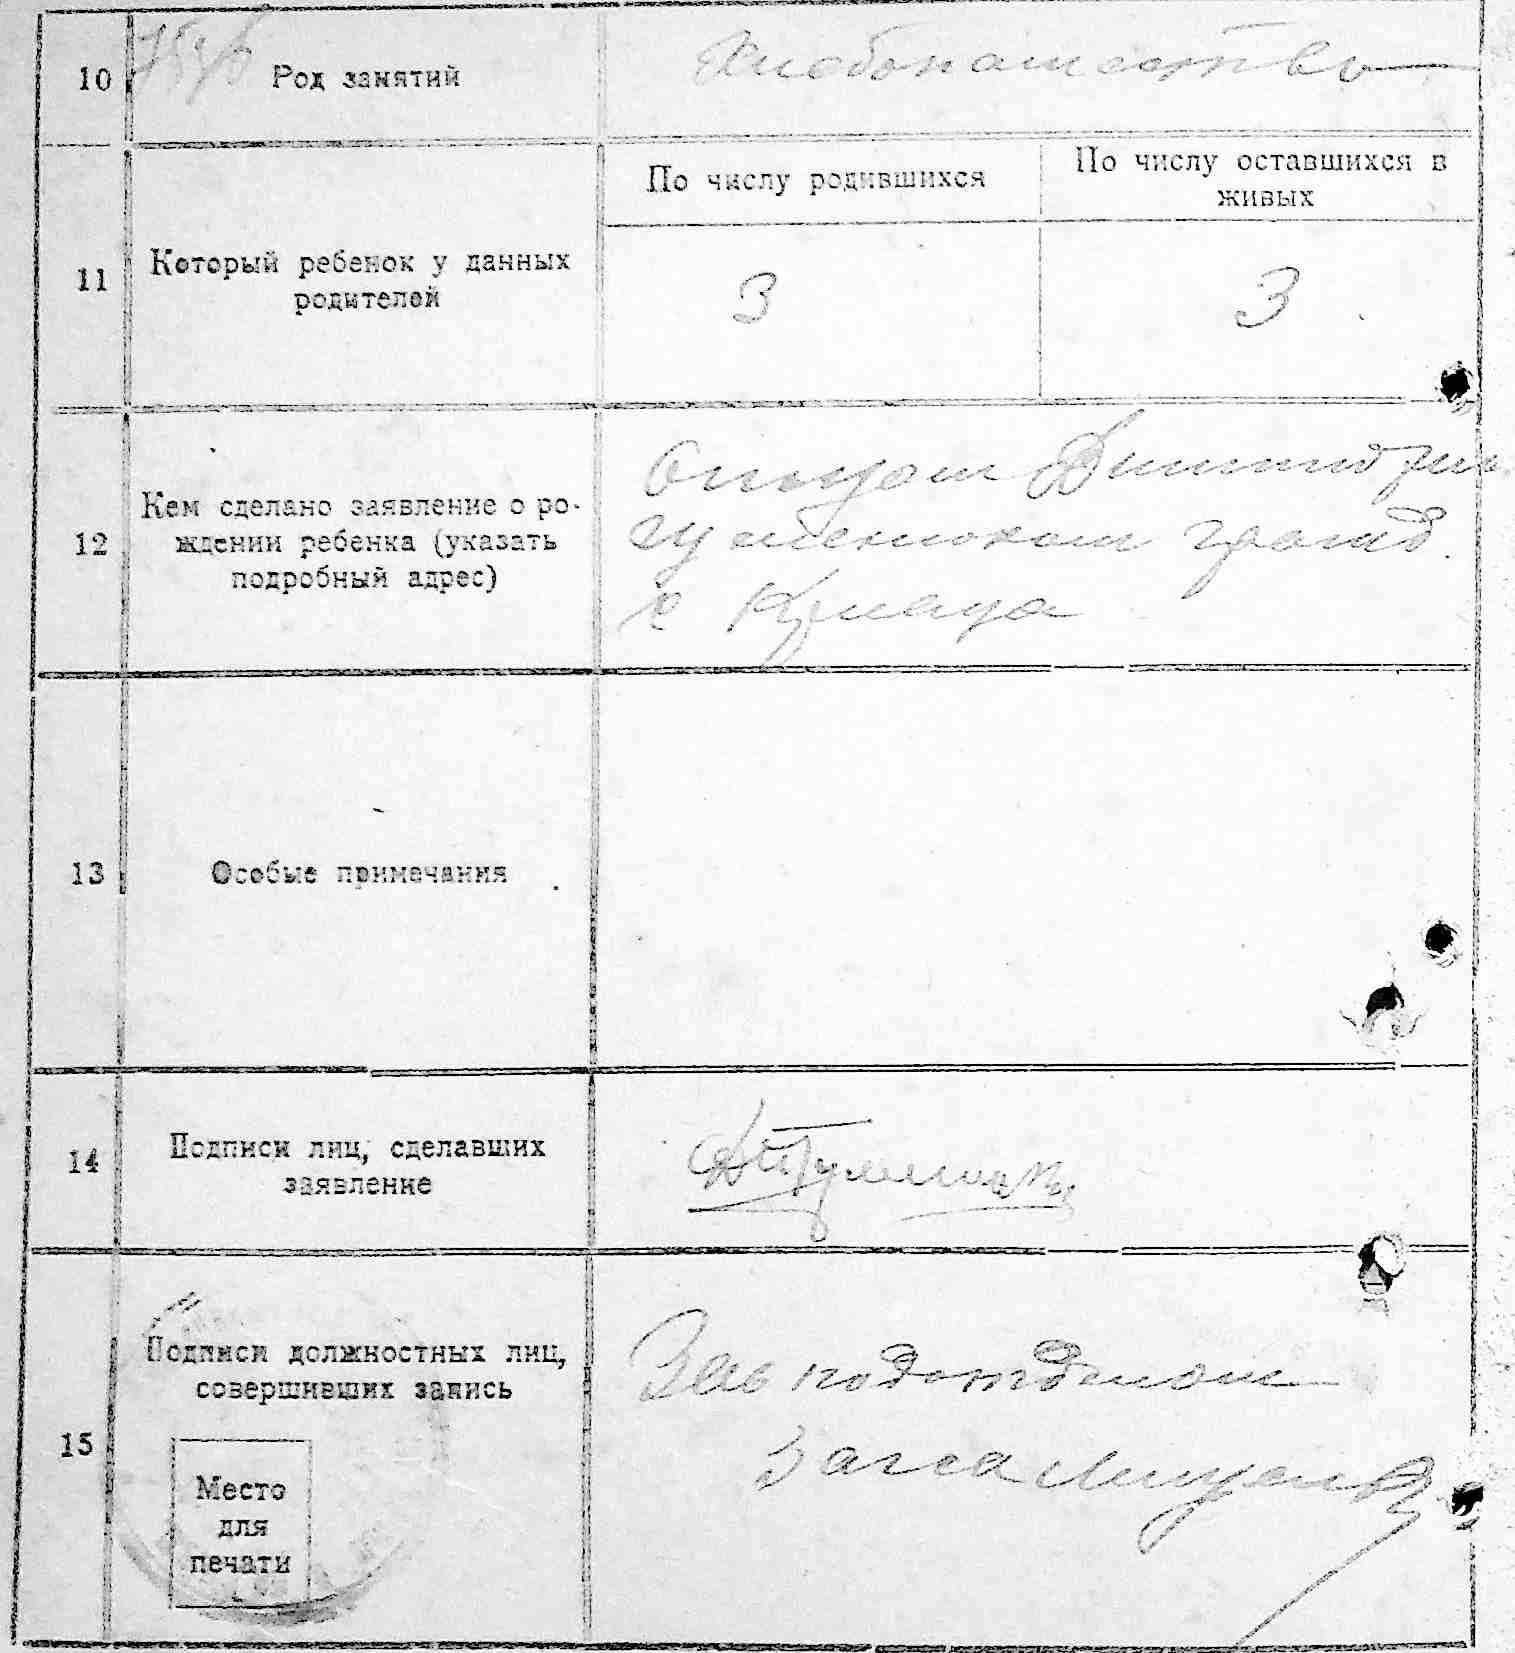 10
Род занятий
Хлебопашество
11
Который ребенок у данных
родителей
По числу родившихся
По числу оставшихся в
живых
3
3
12
Кем сделано заявление о ро-
ждении ребенка (указать
подробный адрес)
Отцом
гражд.
с
13
Особые примечания
14
Подписи лиц, сделавших
заявление
15
Подписи должностных лиц,
совершивших запись
Место
для
печати
Зав подотделом
Загса